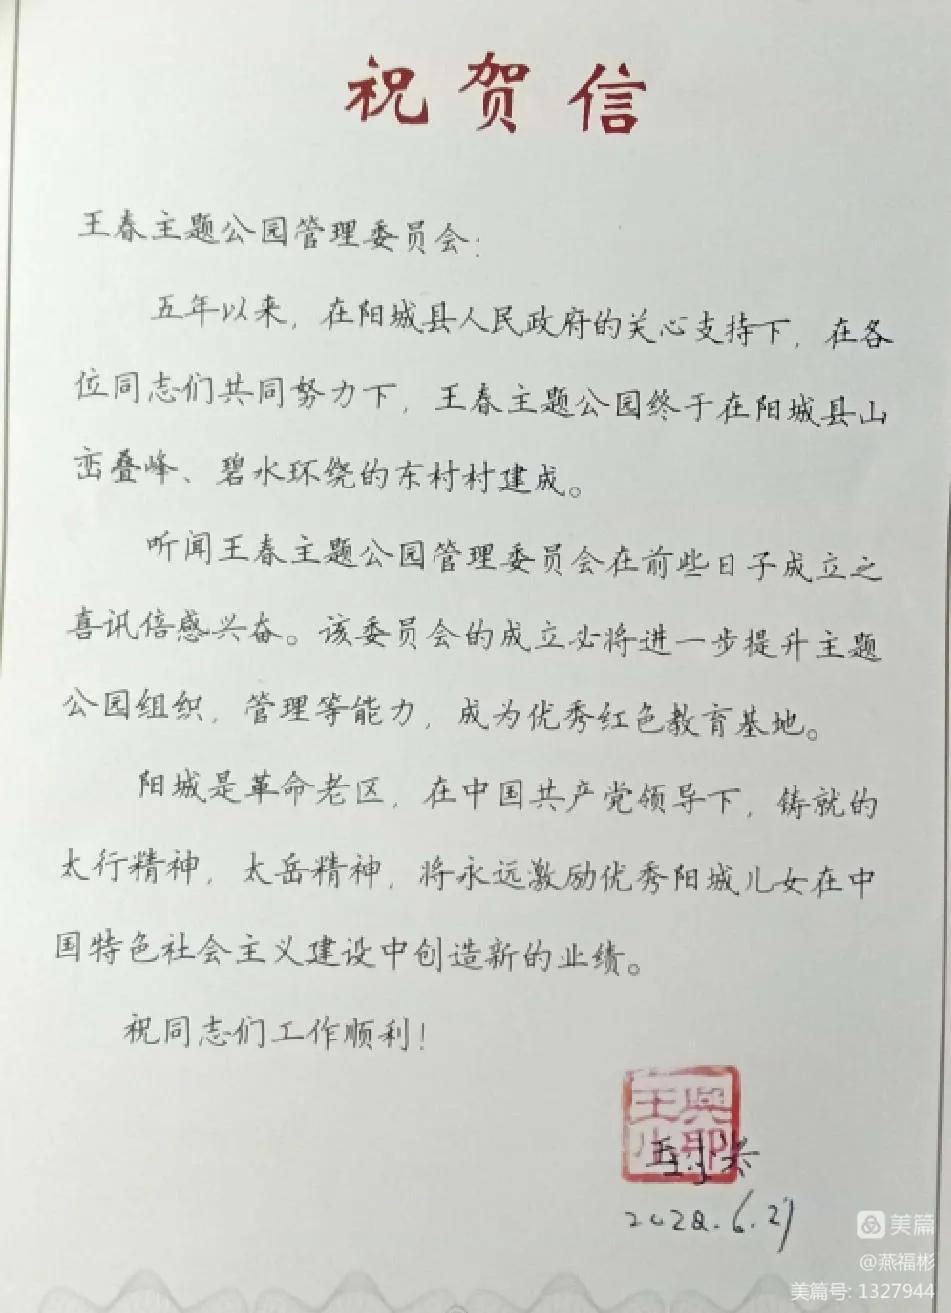 祝贺信
王春主题公园管理委员会：
五年以来，在阳城县人民政府的关心支持下，在各
位同志们共同努力下，王春主题公园终于在阳城县山
峦叠峰、碧水环绕的东村村建成。
听闻王春主题公园管理委员会在前些日子成立之
喜讯倍感兴奋。该委员会的成立必将进一步提升主题
公园组织，管理等能力，成为优秀红色教育基地。
阳城是革命老区，在中国共产党领导下，铸就的
太行精神，太岳精神，将永远激励优秀阳城儿女在中
国特色社会主义建设中创造新的业绩。
祝同志们工作顺利！
王小兴
美篇
@燕福彬
美篇号: 1327944